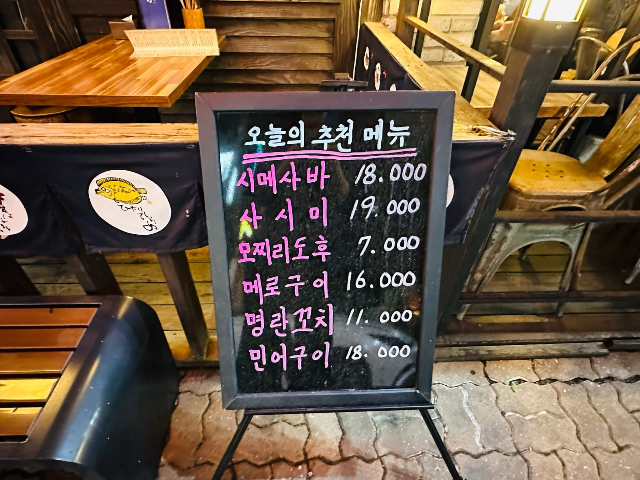 오늘의 추천 메뉴
시메사바 18.000
사시미 19.000
모찌리도후 7.000
메로구이 16.000
명란꼬치 11.000
민어구이 18.000